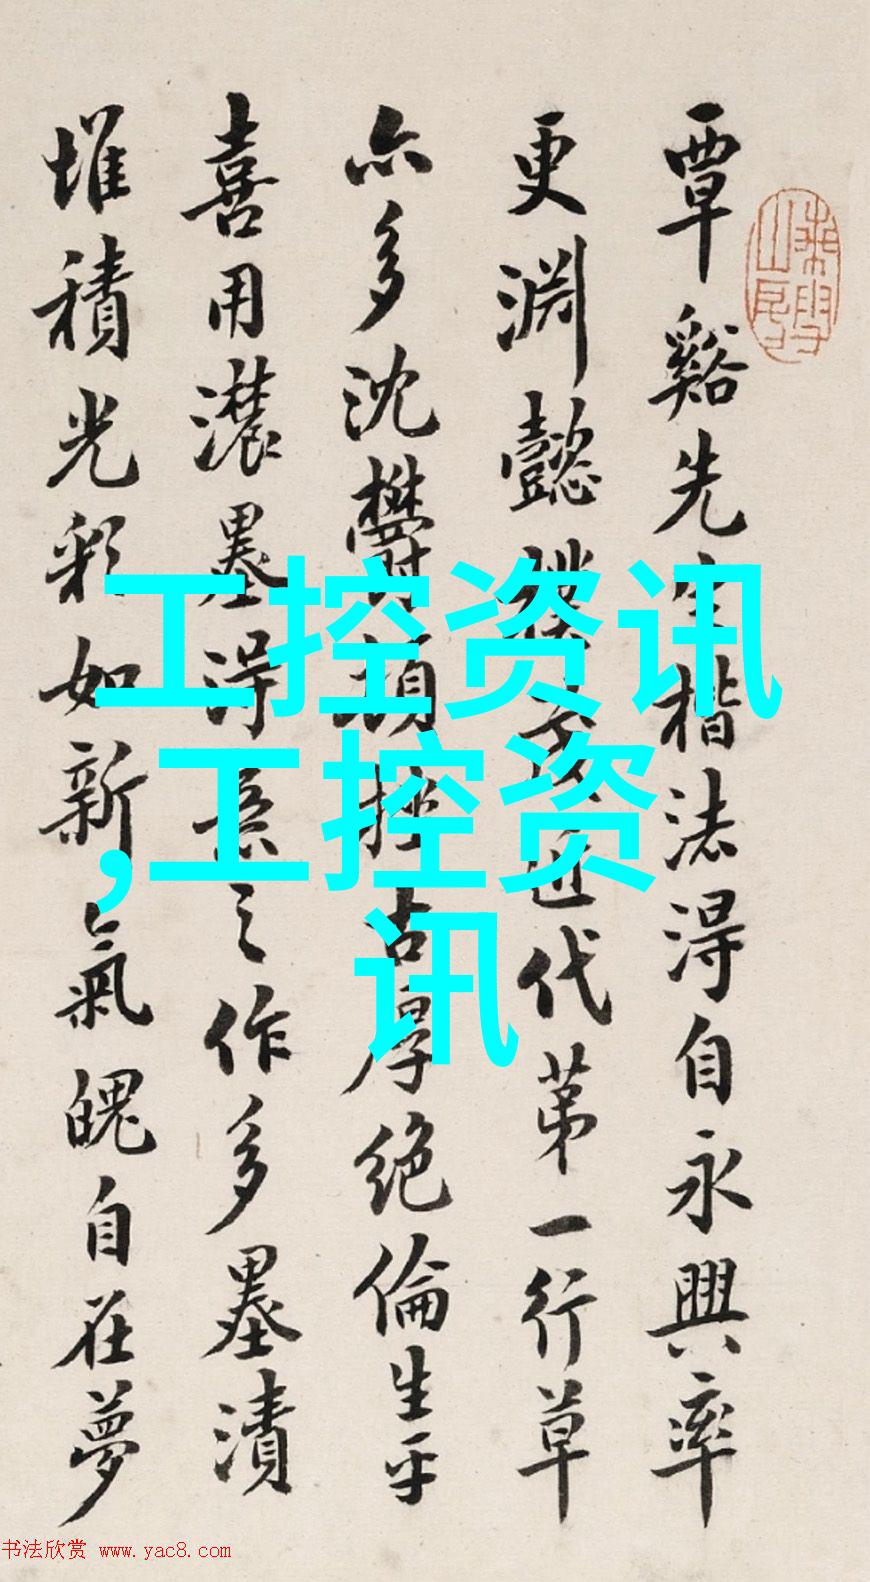 覃谿先生楷法得自永興率
更渊懿樸茂近代第一行草
亦多沈欝頓挫古厚绝倫生平
喜用濃墨得意之作多墨漬
堆積光彩如新氣魄自在夢
工控资讯
,工控资
讯
书法欣赏 www.yac8.com